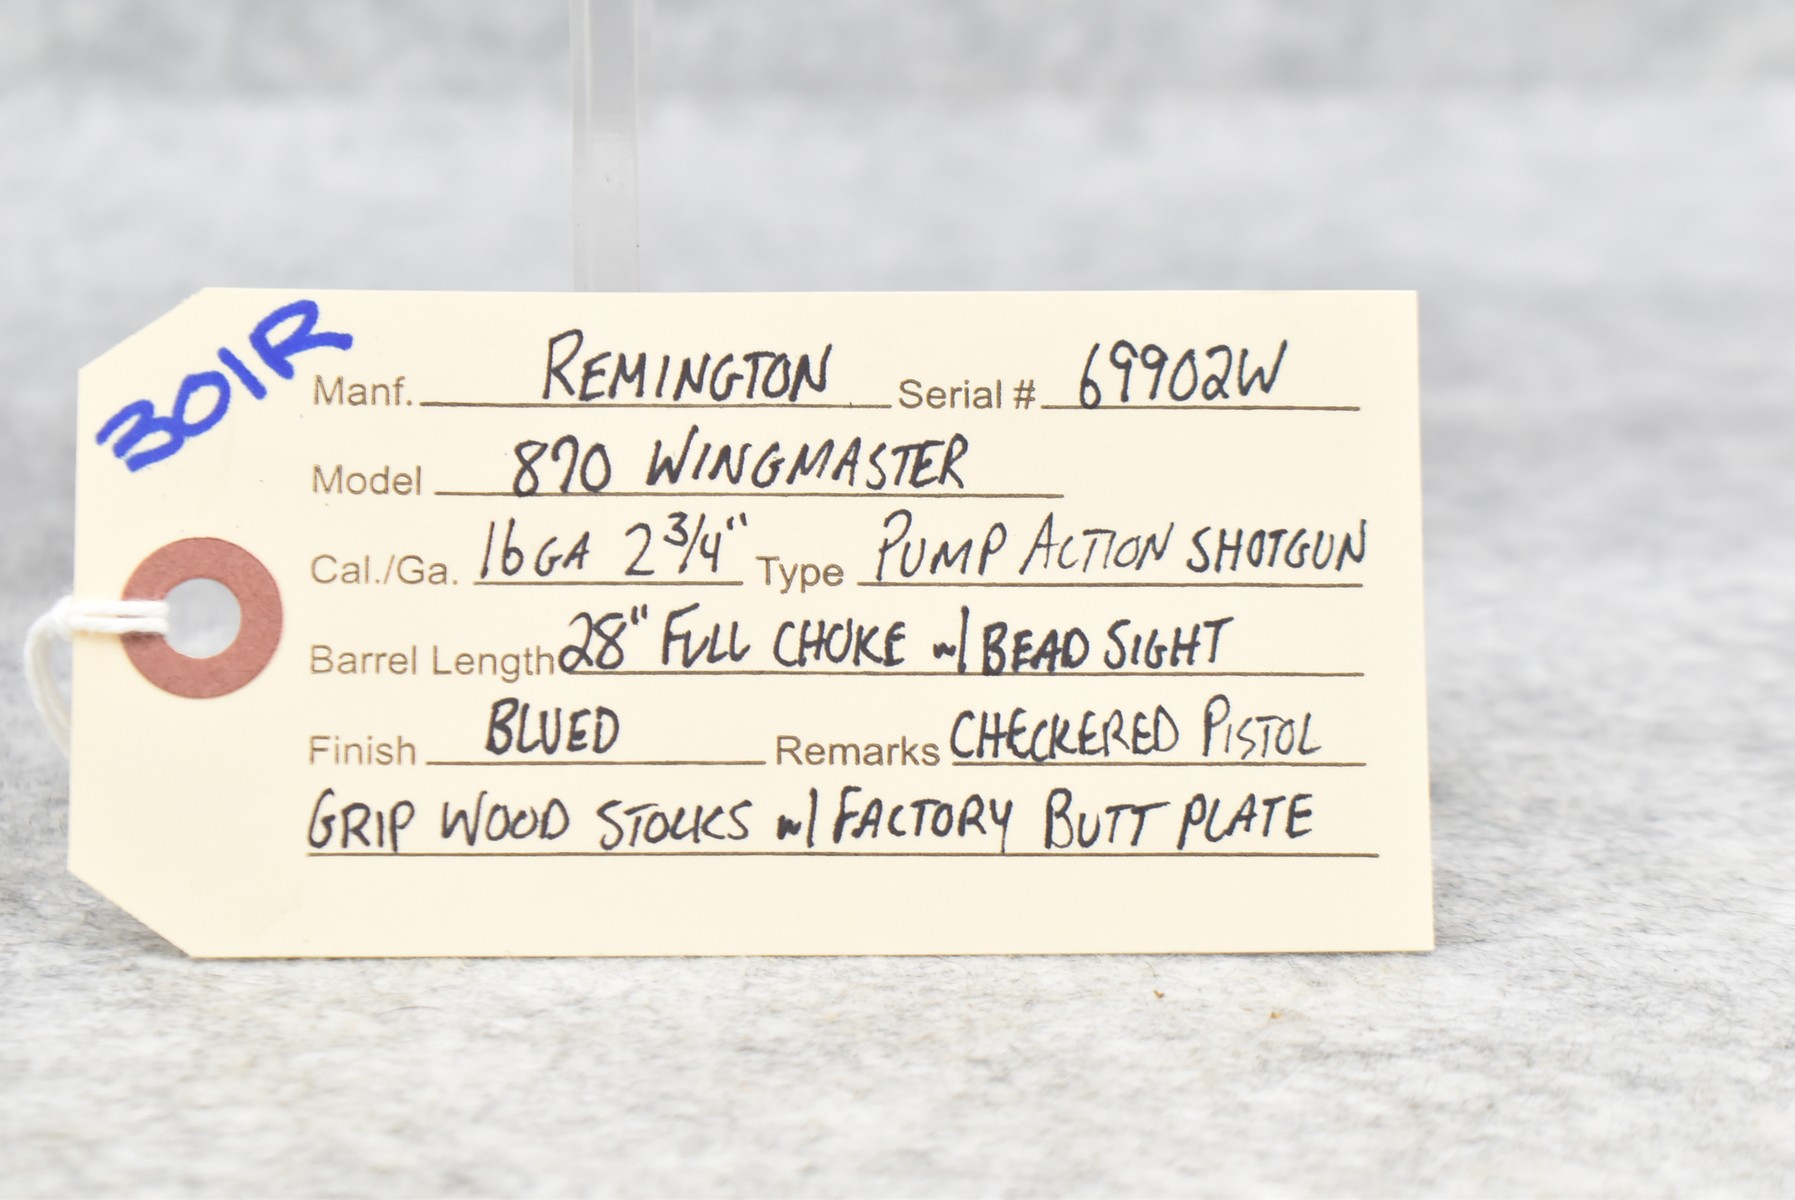 301R
Manf. REMINGTON Serial # 69902W
Model 870 WINGMASTER
Cal./Ga. 16GA 2 3/4" Type PUMP ACTION SHOTGUN
Barrel Length 28" FULL CHOKE w/ BEAD SIGHT
Finish BLUED Remarks CHECKERED PISTOL
GRIP WOOD STOCKS w/ FACTORY BUTT PLATE